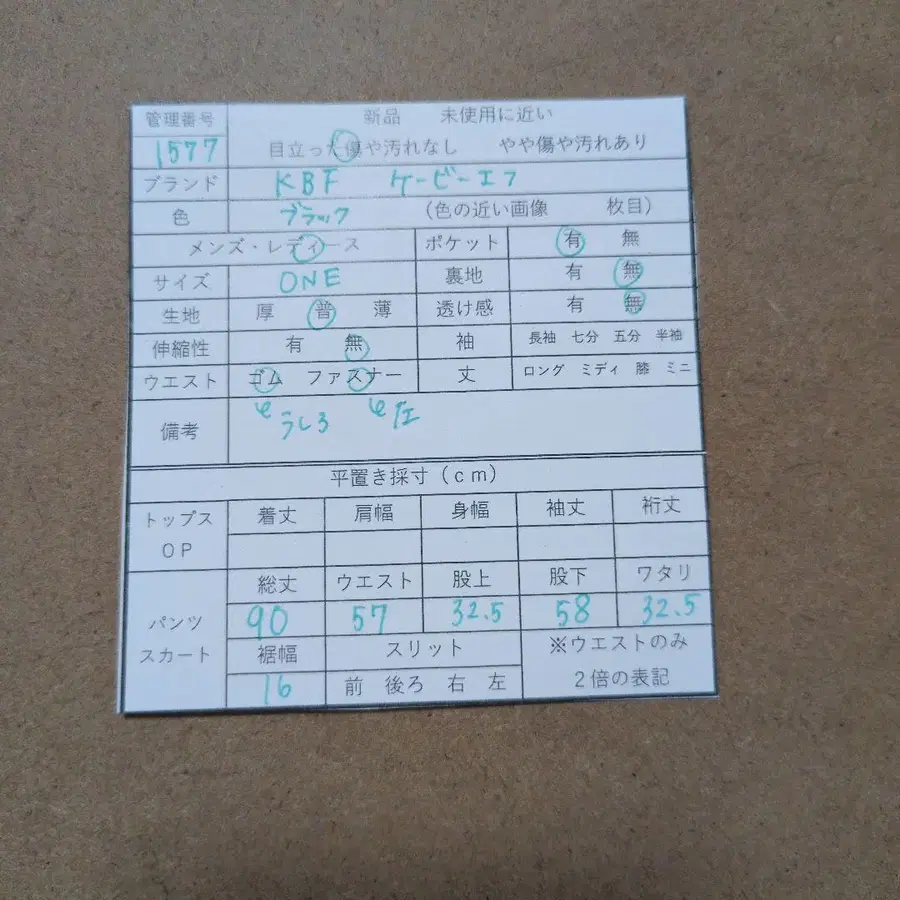 管理番号 新品 未使用に近い
1577 目立った傷や汚れなし やや傷や汚れあり
ブランド KBF ケービーエフ
色 ブラック (色の近い画像 枚目)
メンズ・レディース ポケット 有 無
サイズ ONE 裏地 有 無
生地 厚 普 薄 透け感 有 無
伸縮性 有 無 袖 長袖 七分 五分 半袖
ウエスト ゴム ファスナー 丈 ロング ミディ 膝 ミニ
備考 うしろ 左
平置き採寸(cm)
トップス OP 着丈 肩幅 身幅 袖丈 裄丈
総丈 ウエスト 股上 股下 ワタリ
パンツ スカート 90 57 32.5 58 32.5
裾幅 スリット ※ウエストのみ
16 前 後ろ 右 左 2倍の表記